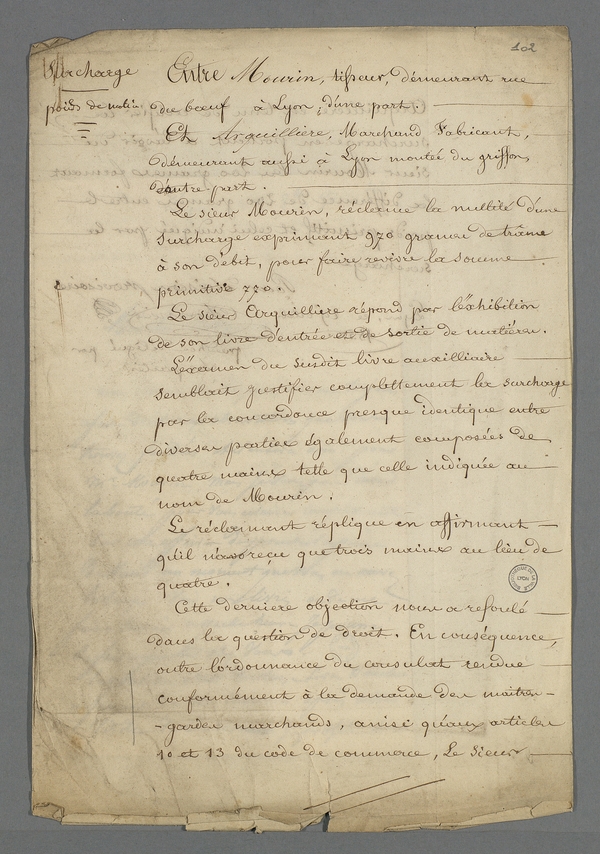 102
Surcharge
poids de matière
Entre Mourin, tisseur, demeurant rue
du bœuf à Lyon, d'une part.
Et Arquilliere, Marchand Fabricant,
demeurant aussi à Lyon montée du griffon,
d'autre part.
Le sieur Mourin, réclame la nullité d'une
surcharge exprimant 970 grames de trâme
à son débit, pour faire revivre la somme
primitive 770.
Le sieur Arquilliere répond par l'exhibition
de son livre d'entrée et de sortie de matières.
L'examen du susdit livre auxilliaire
semblait justifier complettement la surcharge
par la concordance presque identique entre
diverses parties également composées de
quatre mains telle que celle indiquée au
nom de Mourin.
Le réclamant réplique en affirmant
qu'il n'a reçu que trois mains au lieu de
quatre.
Cette derniere objection nous a refoulé
dans la question de droit. En conséquence,
outre l'ordonnance du consulat rendue
conformément à la demande des maitres-
-gardes marchands, ainsi qu'aux articles
10 et 13 du code de commerce, Le sieur